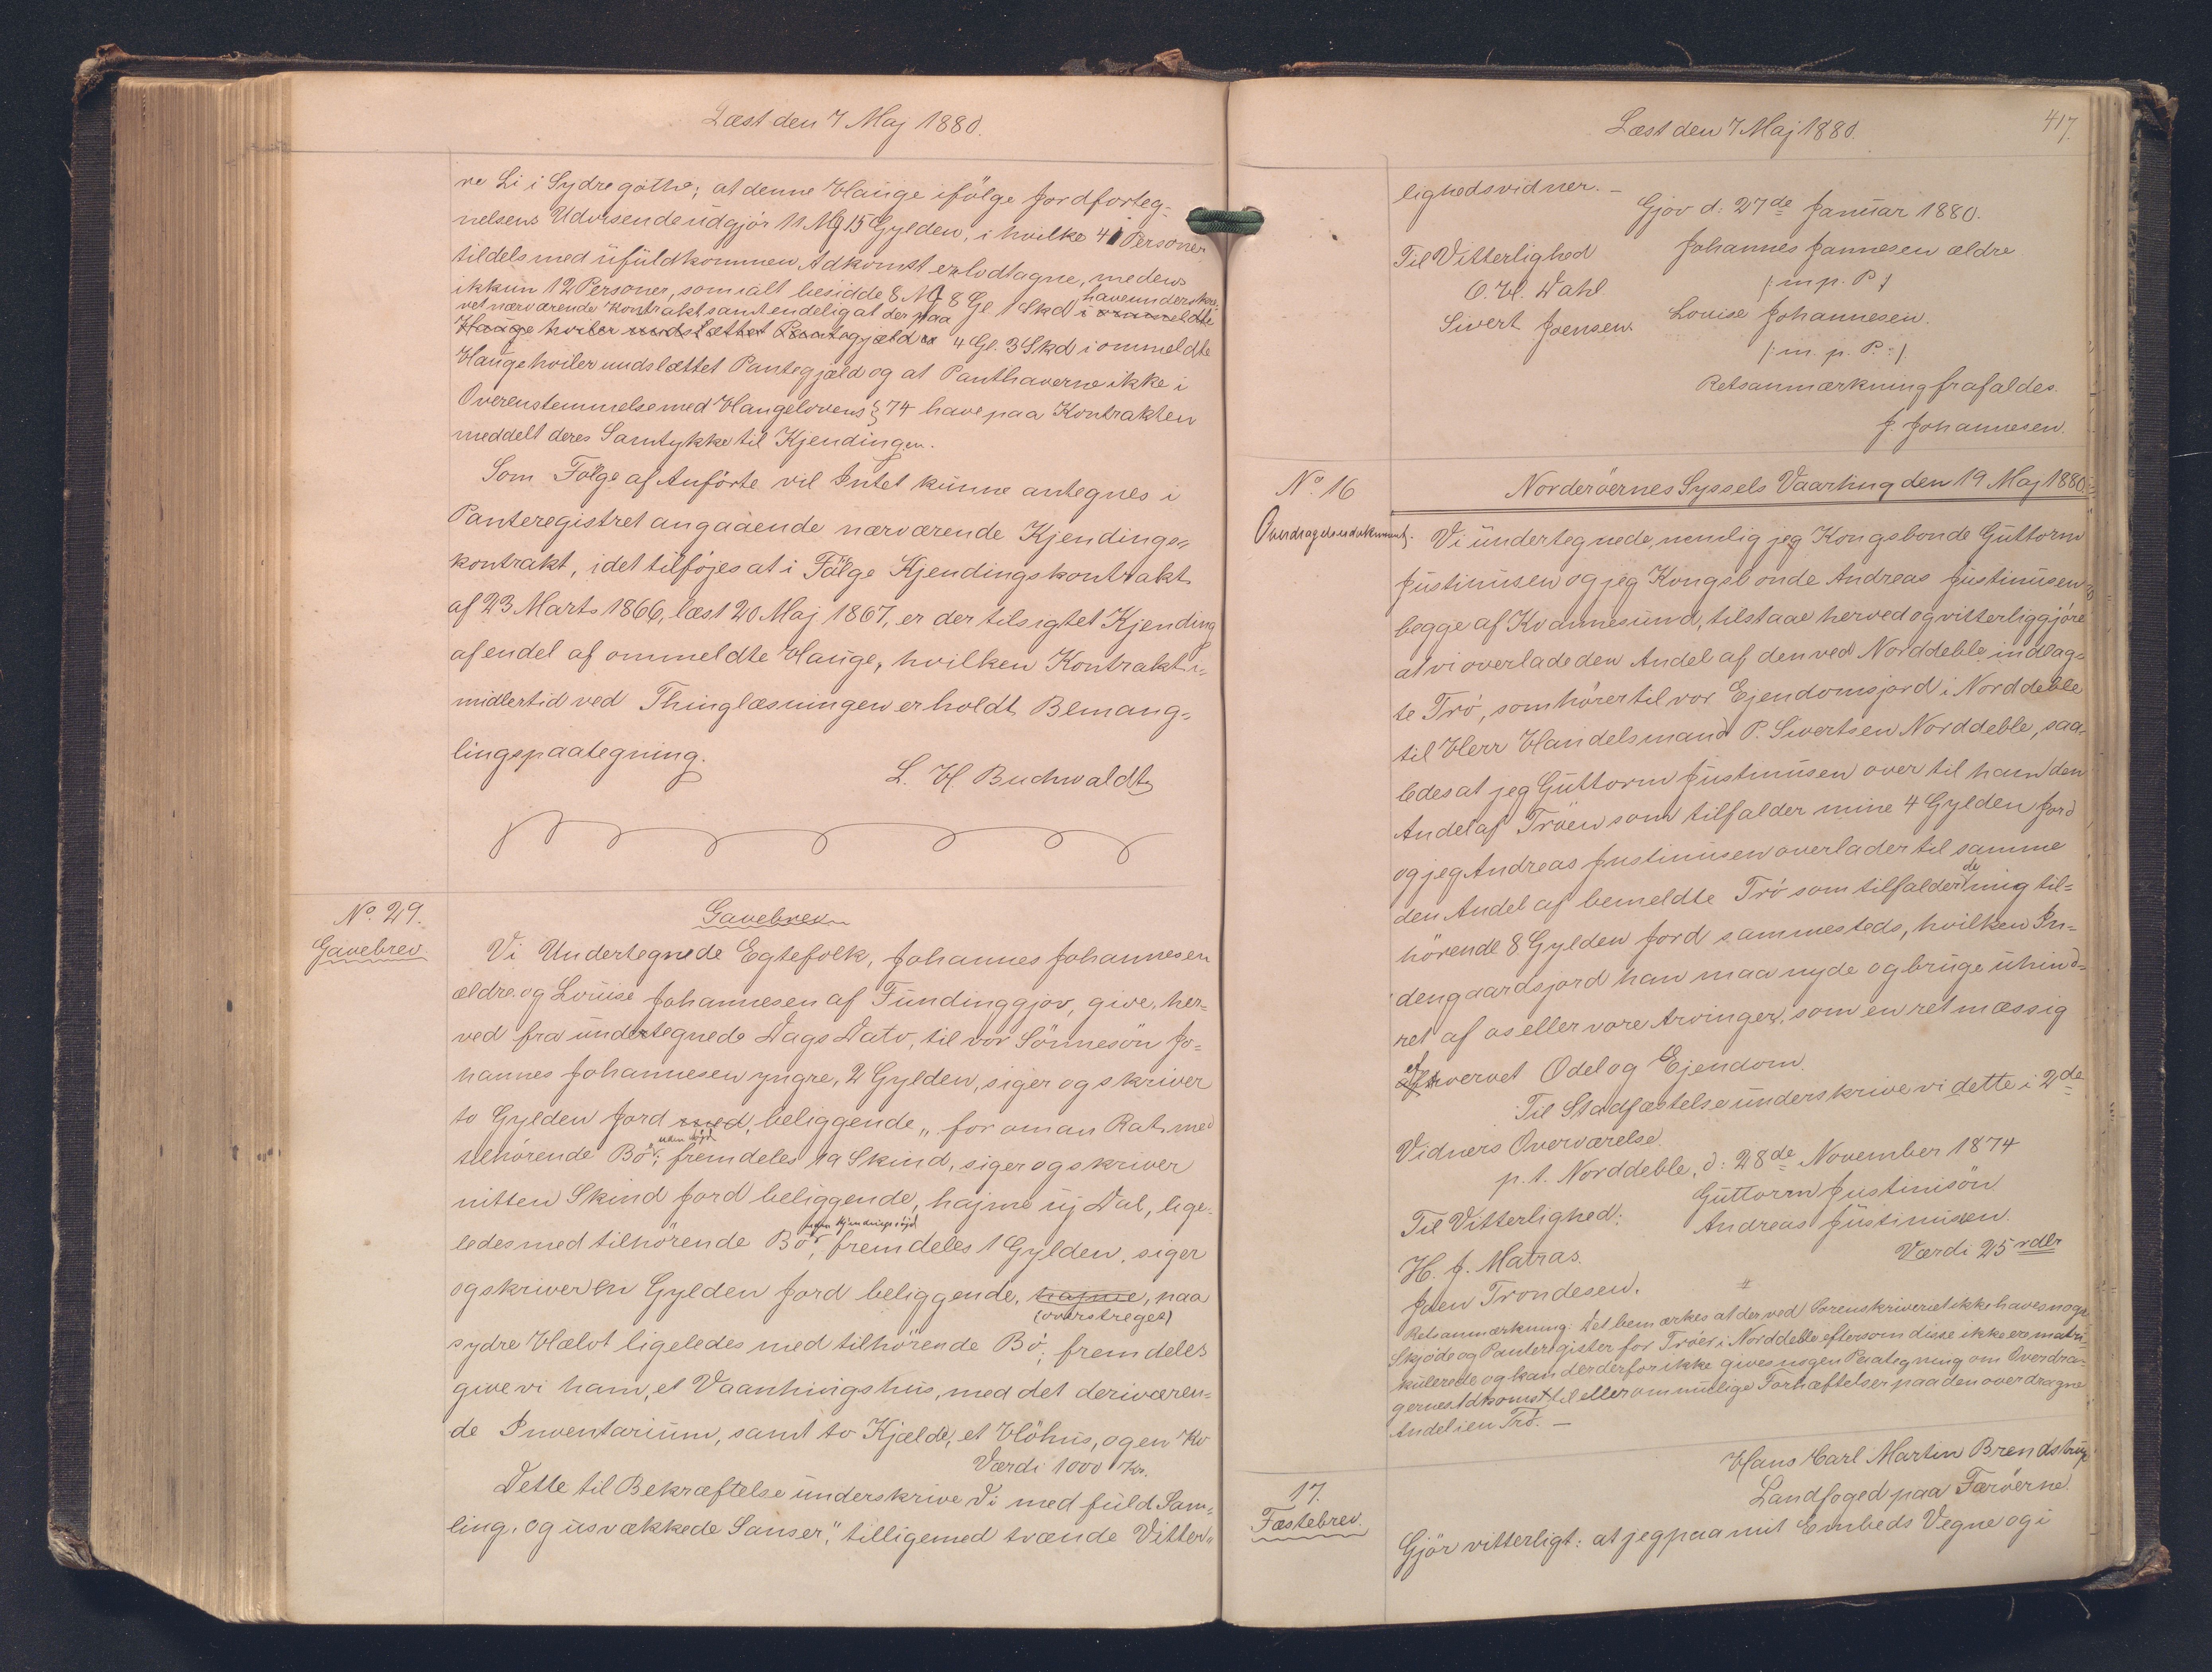 Læst den 7 Maj 1880.
re Li i Sydregøthe; at denne Hauge ifölge Jordforteg-
nelsens Udvisende udgjör 11 Mg 15 Gylden, i hvilke 41 Personer
tildels med üfüldkommen Adkomst er lodtagne, medens
ikkun 12 Personer, som ialt besidde 8 M 8 Gl 1 Skd i ommeldte
have underskre-
vet nærværende Kontrakt samt endelig at der paa
Hauge hviler uudslettet Pantegjæld 4 Gl. 3 Skd i ommeldte
Hauge hviler uudslættet Pantegjæld og at Panthaverne ikke i
Overenstemmelse med Haugelovens § 74 have paa Kontrakten
meddelt deres Samtykke til Kjendingen.
Som Fölge af Anförte vil Intet künne antegnes i
Panteregistret angaaende nærværende Kjendings-
kontrakt, idet tilföjes at i Fölge Kjendingskontrakt
af 23 Marts 1866, læst 20 Maj 1867, er der tilsigtet Kjending
af endel af ommeldte Hauge, hvilken Kontrakt i-
midlertid ved Thinglæsningen erholdt Bemang-
lingspaategning.
L. H. Buchwaldt
No. 29.
Gavebrev
Gavebrev
Vi Undertegnede Egtefolk, Johannes Johannesen
ældre og Louise Johannesen af Fündinggjov, give her-
ved fra ündertegnede Dags Dato, til vor Sönnesön Jo-
hannes Johannesen yngre, 2 Gylden, siger og skriver
to Gylden Jord med, beliggende „for oman Rat, med
tilhörende Bö; fremdeles 19 Skind, siger og skriver
nitten Skind Jord beliggende, hajme uj Dal, lige-
ledes med tilhörende Bö, fremdeles 1 Gylden, siger
og skriver en Gylden Jord beliggende, hajme, paa
(overstreget)
sydre Hælvt ligeledes med tilhörende Bö; fremdeles
give vi ham, et Vaanhüsgshüs, med det derværen-
de Inventariüm, samt to Kjælde, et Höhüs, og en Ko
Værdi 1000 Kr.
Dette til Bekræftelse ünderskrive Vi med füld Sam-
ling, og üsvækkede Sanser," tilligemed tvænde Vitter-
Læst den 7 Maj 1880.
417.
lighedsvidner. —
Gjov d: 27de Januar 1880.
Til Vitterlighed
Johannes Jannesen ældre
O. H. Dahl
(: m p. P :)
Sivert Joensen
Louise Johannesen.
(: m. p. P. :)
Retsanmærkning frafaldes.
J. Johannesen.
No. 16
Norderöernes Syssels Vaarting den 19 Maj 1880.
Overdragelsesdokument.
Vi ündertegnede, nemlig jeg Kongsbonde Güttorm
Jüstinüsen og jeg Kongsbonde Andreas Jüstinüsen
begge af Kvannesünd, tilstaae herved og vitterliggjöre
at vi overlade den Andel af den ved Norddeble indlag-
te Trö, som hörer til vor Ejendomsjord i Norddeble
til Herr Handelsmand P. Sivertsen Norddeble, saa-
ledes at jeg Güttorm Jüstinüsen over til ham den
Andel af Tröen som tilfalder mine 4 Gylden Jord
og jeg Andreas Jüstinüsen overlader til samme
den Andel af bemeldte Trö som tilfalder de mig til-
hörende 8 Gylden Jord sammesteds, hvilken In-
dengaardsjord han maa nyde og brüge ühind-
ret af os eller vore Arvinger, som en retmæssig
erhvervet Odel og Ejendom.
Til Stadfæstelse ünderskrive vi dette i 2de
Vidners Overværelse.
p. t. Norddeble, d: 28de November 1874
Til Vitterlighed:
Güttorm Jüstinisön
H. J. Matras.
Andreas Jüstinüsen.
Joen Trondesen.
Værdi 25 rdlr
Retsanmærkning: Det bemærkes at der ved Sorenskriveriet ikke haves noget
Skjöde og Panteregister for Tröer i Norddeble eftersom disse ikke ere matri-
kulerede og kan der derfor ikke gives nogen Paategning om Overdra-
gernes Adkomst til eller om mulige Forhæftelser paa den overdragne
Andel i en Trö. —
17.
Fæstebrev.
Hans Carl Martin Brendstrup
Landfoged paa Færöerne.
Gjör vitterligt: at jeg paa mit Embeds Vegne og i